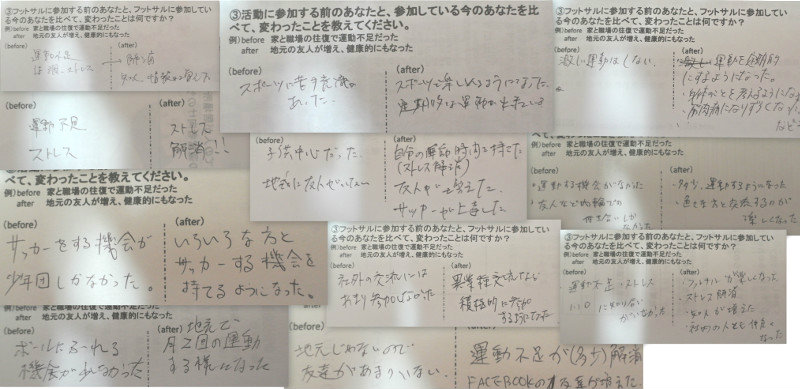 ③フットサルに参加する前のあなたと、フットサルに参加している今のあなたを比べて、変わったことは何ですか？
例）before 家と職場の往復で運動不足だった
after 地元の友人が増え、健康的にもなった
(before)
(after)
運動不足
(before)
(after)
運動不足
ストレス
ストレス
解消!!
③活動に参加する前のあなたと、参加している今のあなたを比
べて、変わったことを教えてください。
例）before 家と職場の往復で運動不足だった
after 地元の友人が増え、健康的にもなった
(before)
(after)
スポーツに苦手意識が
あった。
スポーツを楽しめるようになった。
定期的な運動が出来ている
③フットサルに参加する前のあなたと、フットサルに参加してい
る今のあなたを比べて、変わったことは何ですか？
例）before 家と職場の往復で運動不足だった
after 地元の友人が増え、健康的にもなった
(before)
(after)
激しい運動はしない。
運動を定期的
にするようになった。
(before)
(after)
子供中心だった。
地元に友人がいない
自分の運動時間を持てた
(ストレス解消)
友人が増えた
サッカーが上達した
例）before 家と職場の往復で運動不足だった
after 地元の友人が増え、健康的にもなった
(before)
(after)
・運動する機会がなかった
・多少、運動するようになった
楽しくなった
べて、変わったことを教えてください。
例）before 家と職場の往復で運動不足だった
after 地元の友人が増え、健康的にもなった
(before)
(after)
サッカーをする機会が
少年団しかなかった。
いろいろな方と
サッカーする機会を
持てるようになった。
③フットサルに参加する前のあなたと、フットサルに参加してい
る今のあなたを比べて、変わったことは何ですか？
例）before 家と職場の往復で運動不足だった
after 地元の友人が増え、健康的にもなった
(before)
(after)
社外の交流には
あまり参加しなかった
異業種交流などに
積極的に参加
するようになった
③フットサルに参加する前のあなたと、フットサルに参加してい
る今のあなたを比べて、変わったことは何ですか？
例）before 家と職場の往復で運動不足だった
after 地元の友人が増え、健康的にもなった
(before)
(after)
運動不足・ストレス
・フットサルが楽しくなった
・ストレス解消
・知人が増えた
なった
例）before 家と職場の往復で運動不足だった
after 地元の友人が増え、健康的にもなった
(before)
(after)
ボールにふれる
機会が少なかった
地元で
月2回の運動
する様になった
(before)
(after)
地元じゃないので
友達があまりいない。
運動不足が(多少)解消
FACEBOOKの友達が増えた